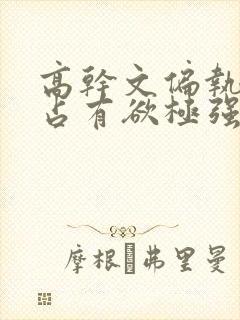 高幹文偏執
占有欲極强
摩根·弗里曼